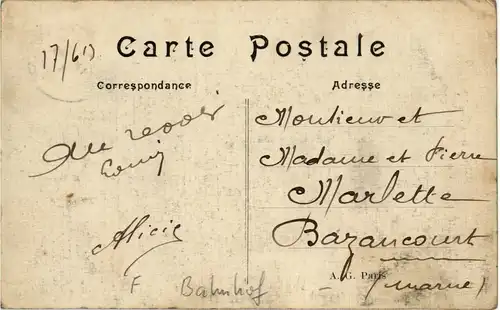 17/6
Carte Postale
Correspondance
Adresse
Au revoir
Alicie
Monsieur et
Madame et Pierre
Marlette
Bazancourt
(Marne)
A. G. Paris
F Bahnhof